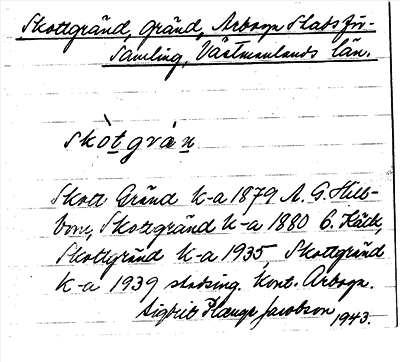 Skottgränd, gränd, Arboga Stadsför-
samling, Västmanlands län.
skòtgrän
Skott Gränd K-a 1879 A. G. Hills-
bom, Skottgränd K-a 1880 C. Häck,
Skottgränd K-a 1935, Skottgränd
K-a 1939 stadsing. kont. Arboga.
Sigbrit Plænge Jacobson 1943.